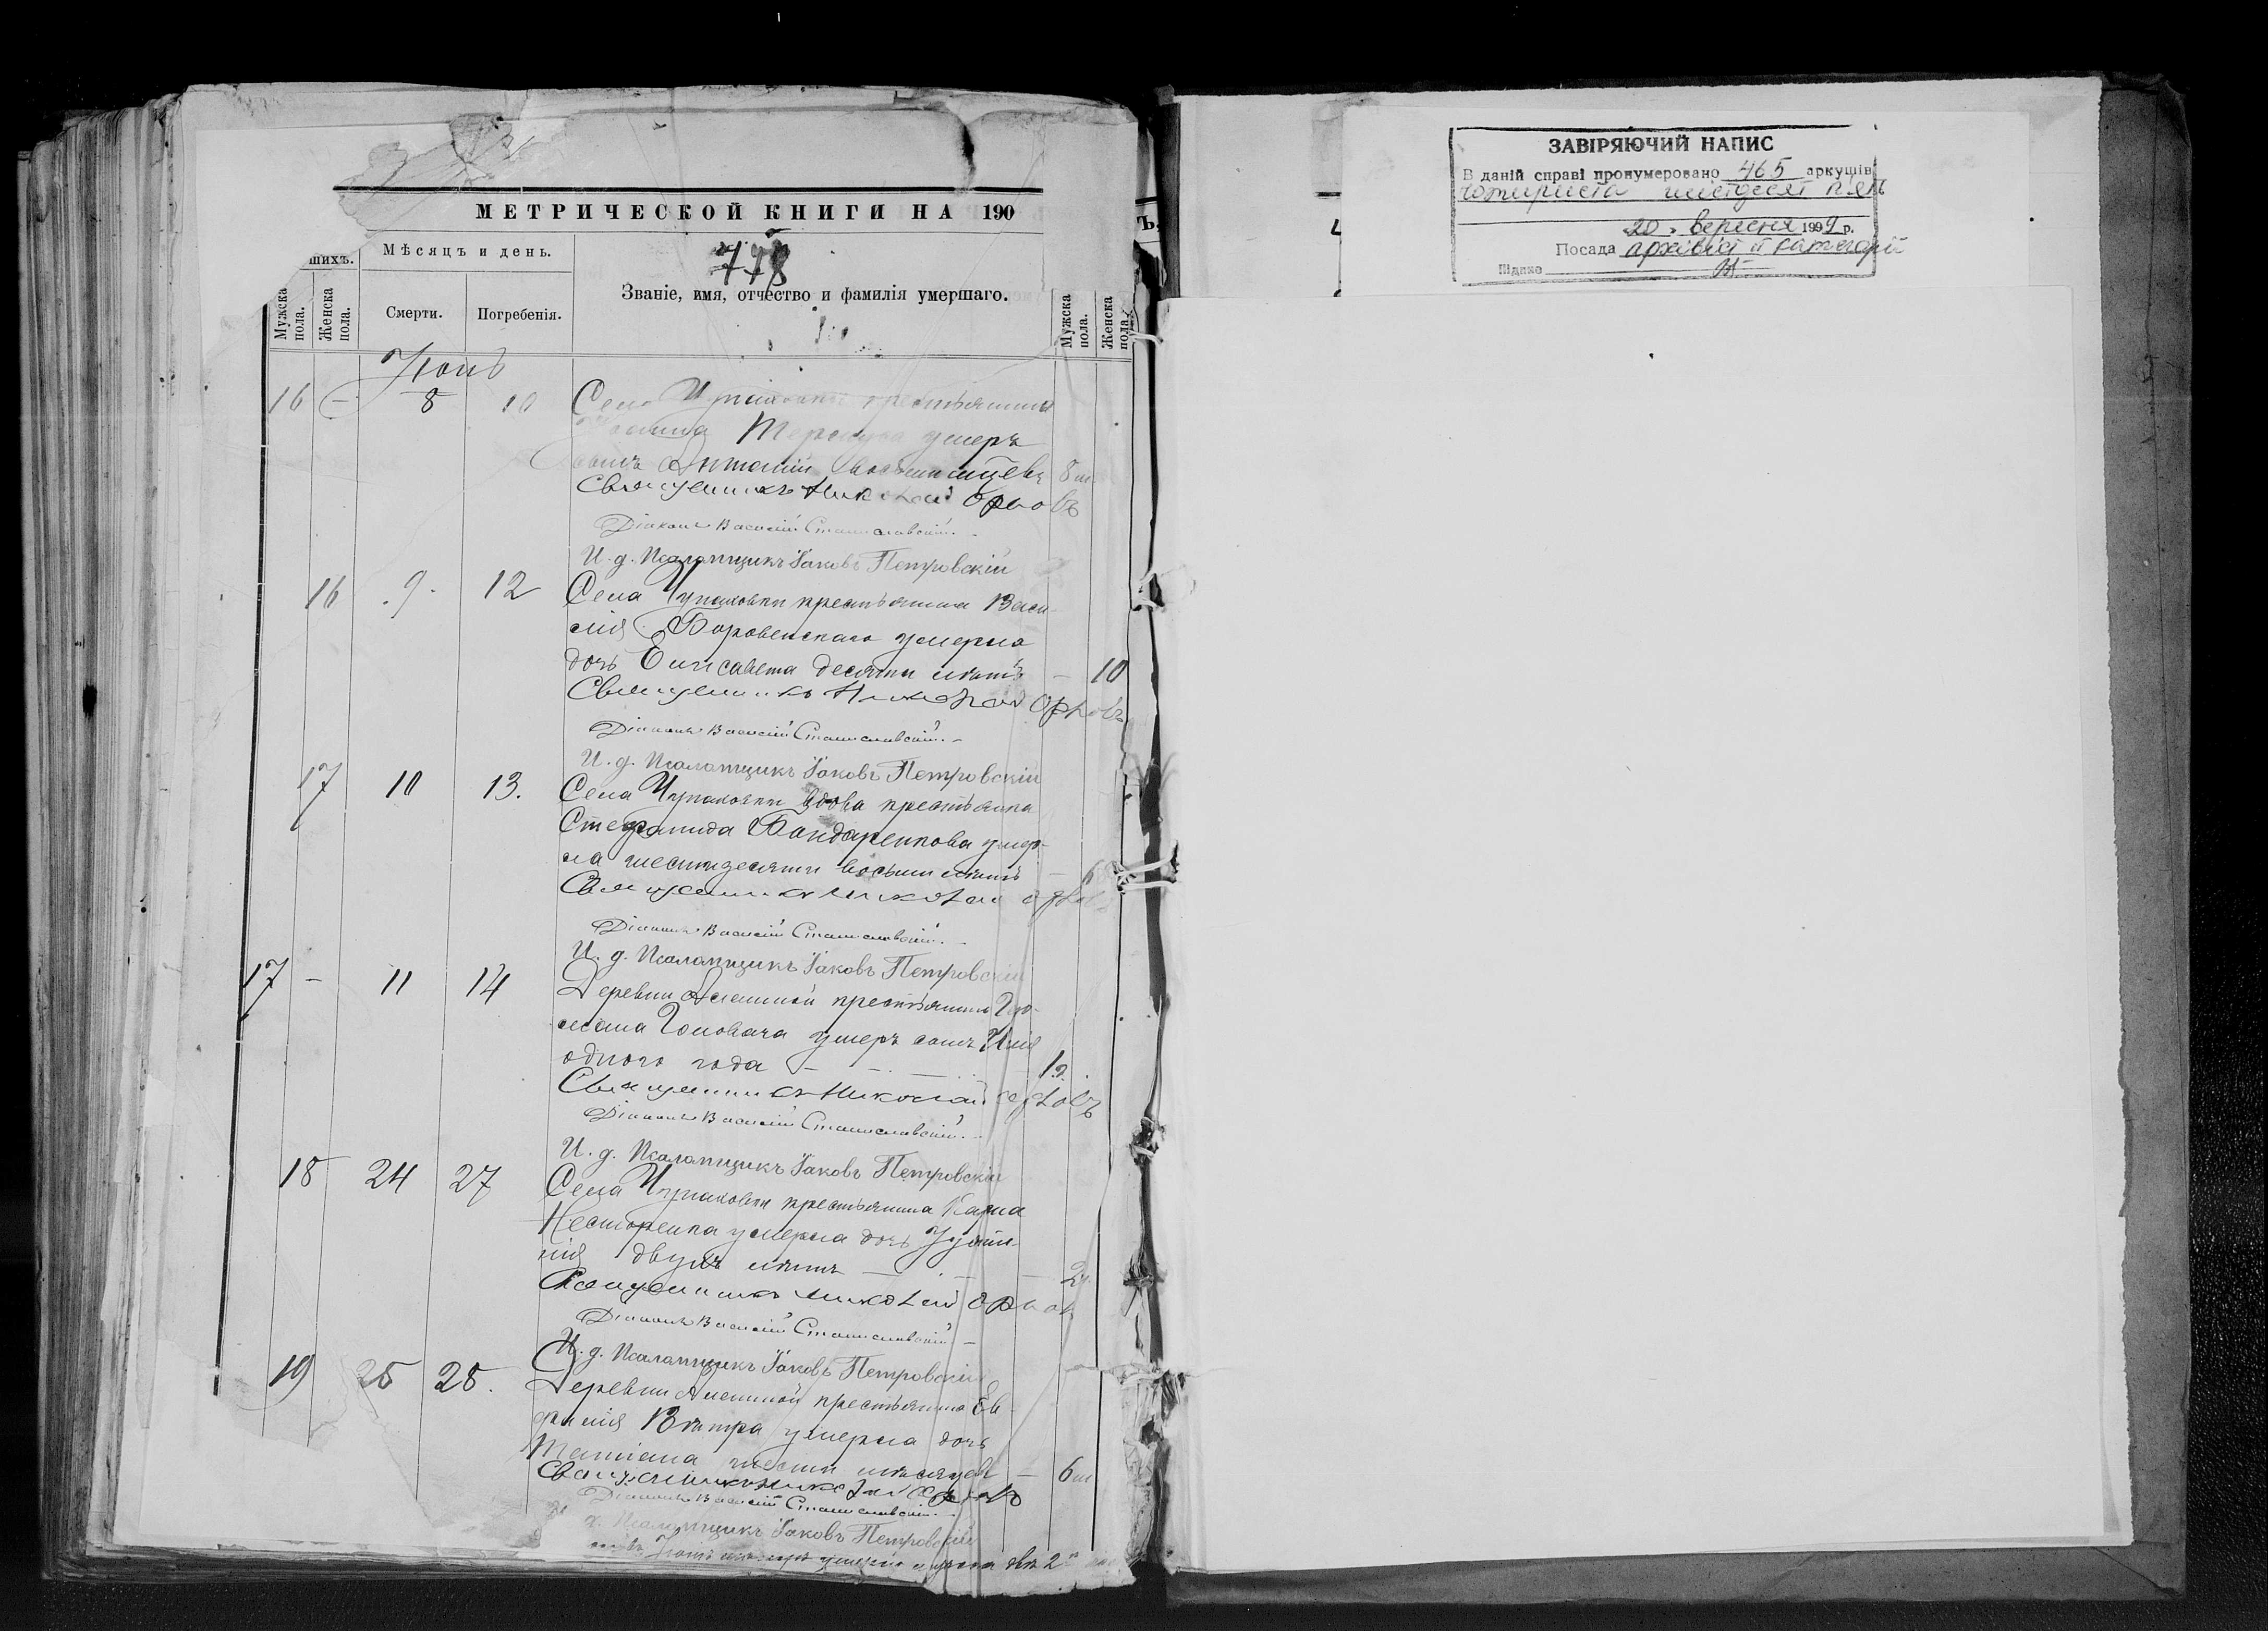 МЕТРИЧЕСКОЙ КНИГИ НА 190
778
шихъ.
Мѣсяцъ и день.
Званіе, имя, отчество и фамилія умершаго.
Мужска пола.
Женска пола.
Смерти.
Погребенія.
Мужска пола.
Женска пола.
Іюнь
16 - 8 10 Села крестьянина
умеръ
сынъ Антоній восьми мѣсяцевъ 8 м
Священникъ Николай Орловъ
Діаконъ Василій Станиславскій.
И. д. Псаломщикъ Іаковъ Петровскій
16 9. 12 Села Чупаховки крестьянина Васи-
лія Боровенскаго умерла
дочь Елисавета десяти лѣтъ - 10
Священникъ Николай Орловъ
Діаконъ Василій Станиславскій. -
И. д. Псаломщикъ Іаковъ Петровскій
17 10 13. Села Чупаховки вдова крестьянка
Стефанида Бондаренкова умер-
ла шестидесяти восьми лѣтъ -
Священникъ Николай Орловъ
Діаконъ Василій Станиславскій. -
И. д. Псаломщикъ Іаковъ Петровскій
17 - 11 14 Деревни крестьянина
Головача умеръ сынъ Илія
одного года - - - 1 г.
Священникъ Николай Орловъ
Діаконъ Василій Станиславскій. -
И. д. Псаломщикъ Іаковъ Петровскій
18 24 27 Села Чупаховки крестьянина Карпа
Несторенка умерла дочь
двухъ лѣтъ - - - 2 г.
Священникъ Николай Орловъ
Діаконъ Василій Станиславскій -
И. д. Псаломщикъ Іаковъ Петровскій
19 25 28. Деревни крестьянина Ев-
фимія Вѣтра умерла дочь
Татіана шести мѣсяцевъ - 6 м
Священникъ Николай Орловъ
Діаконъ Василій Станиславскій. -
д. Псаломщикъ Іаковъ Петровскій
ЗАВІРЯЮЧИЙ НАПИС
В даній справі пронумеровано 465 аркушів
чотириста шістдесят п'ять
20 вересня 1999 р.
Посада архівіст II категорії
Підпис